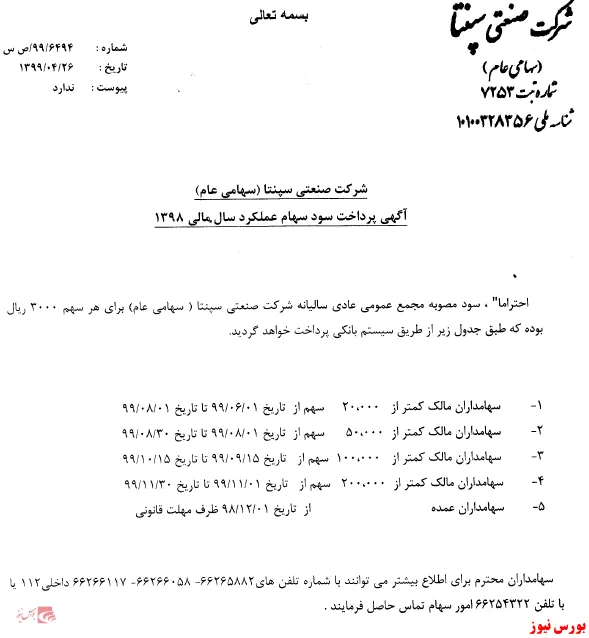 بسمه تعالی
شرکت صنعتی سپنتا
(سهامی عام)
شماره ثبت ۷۲۵۳
شناسه ملی ۱۰۱۰۰۳۲۸۳۵۶
شماره : ۹۹/۶۴۹۴/ص س
تاریخ : ۱۳۹۹/۰۴/۲۶
پیوست : ندارد
شرکت صنعتی سپنتا (سهامی عام)
آگهی پرداخت سود سهام عملکرد سال مالی ۱۳۹۸
احتراما" ، سود مصوبه مجمع عمومی عادی سالیانه شرکت صنعتی سپنتا ( سهامی عام) برای هر سهم ۳۰۰۰ ریال
بوده که طبق جدول زیر از طریق سیستم بانکی پرداخت خواهد گردید.
۱- سهامداران مالک کمتر از ۲۰,۰۰۰ سهم از تاریخ ۹۹/۰۶/۰۱ تا تاریخ ۹۹/۰۸/۰۱
۲- سهامداران مالک کمتر از ۵۰,۰۰۰ سهم از تاریخ ۹۹/۰۸/۰۱ تا تاریخ ۹۹/۰۸/۳۰
۳- سهامداران مالک کمتر از ۱۰۰,۰۰۰ سهم از تاریخ ۹۹/۰۹/۱۵ تا تاریخ ۹۹/۱۰/۱۵
۴- سهامداران مالک کمتر از ۲۰۰,۰۰۰ سهم از تاریخ ۹۹/۱۱/۰۱ تا تاریخ ۹۹/۱۱/۳۰
۵- سهامداران عمده از تاریخ ۹۸/۱۲/۰۱ ظرف مهلت قانونی
سهامداران محترم برای اطلاع بیشتر می توانند با شماره تلفن های۶۶۲۶۵۸۸۲- ۶۶۲۶۶۰۵۸- ۶۶۲۶۶۱۱۷ داخلی۱۱۲ یا
با تلفن ۶۶۲۵۴۳۲۲ امور سهام تماس حاصل فرمایند .
بورس نیوز
بورس نیوز